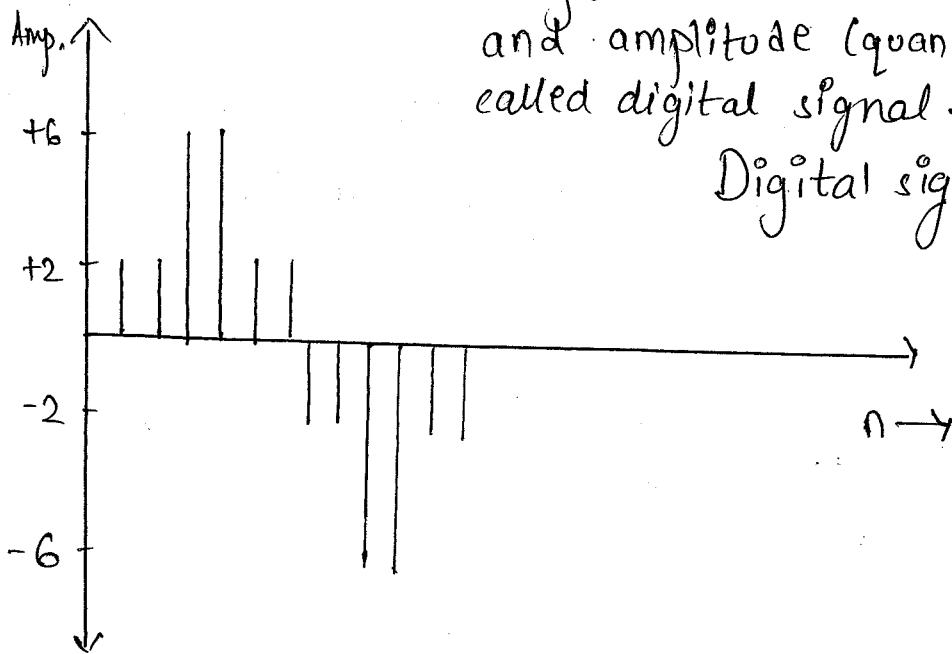 and amplitude (quan
called digital signal.
Digital sig
Amp.
+6
+2
-2
-6
n →